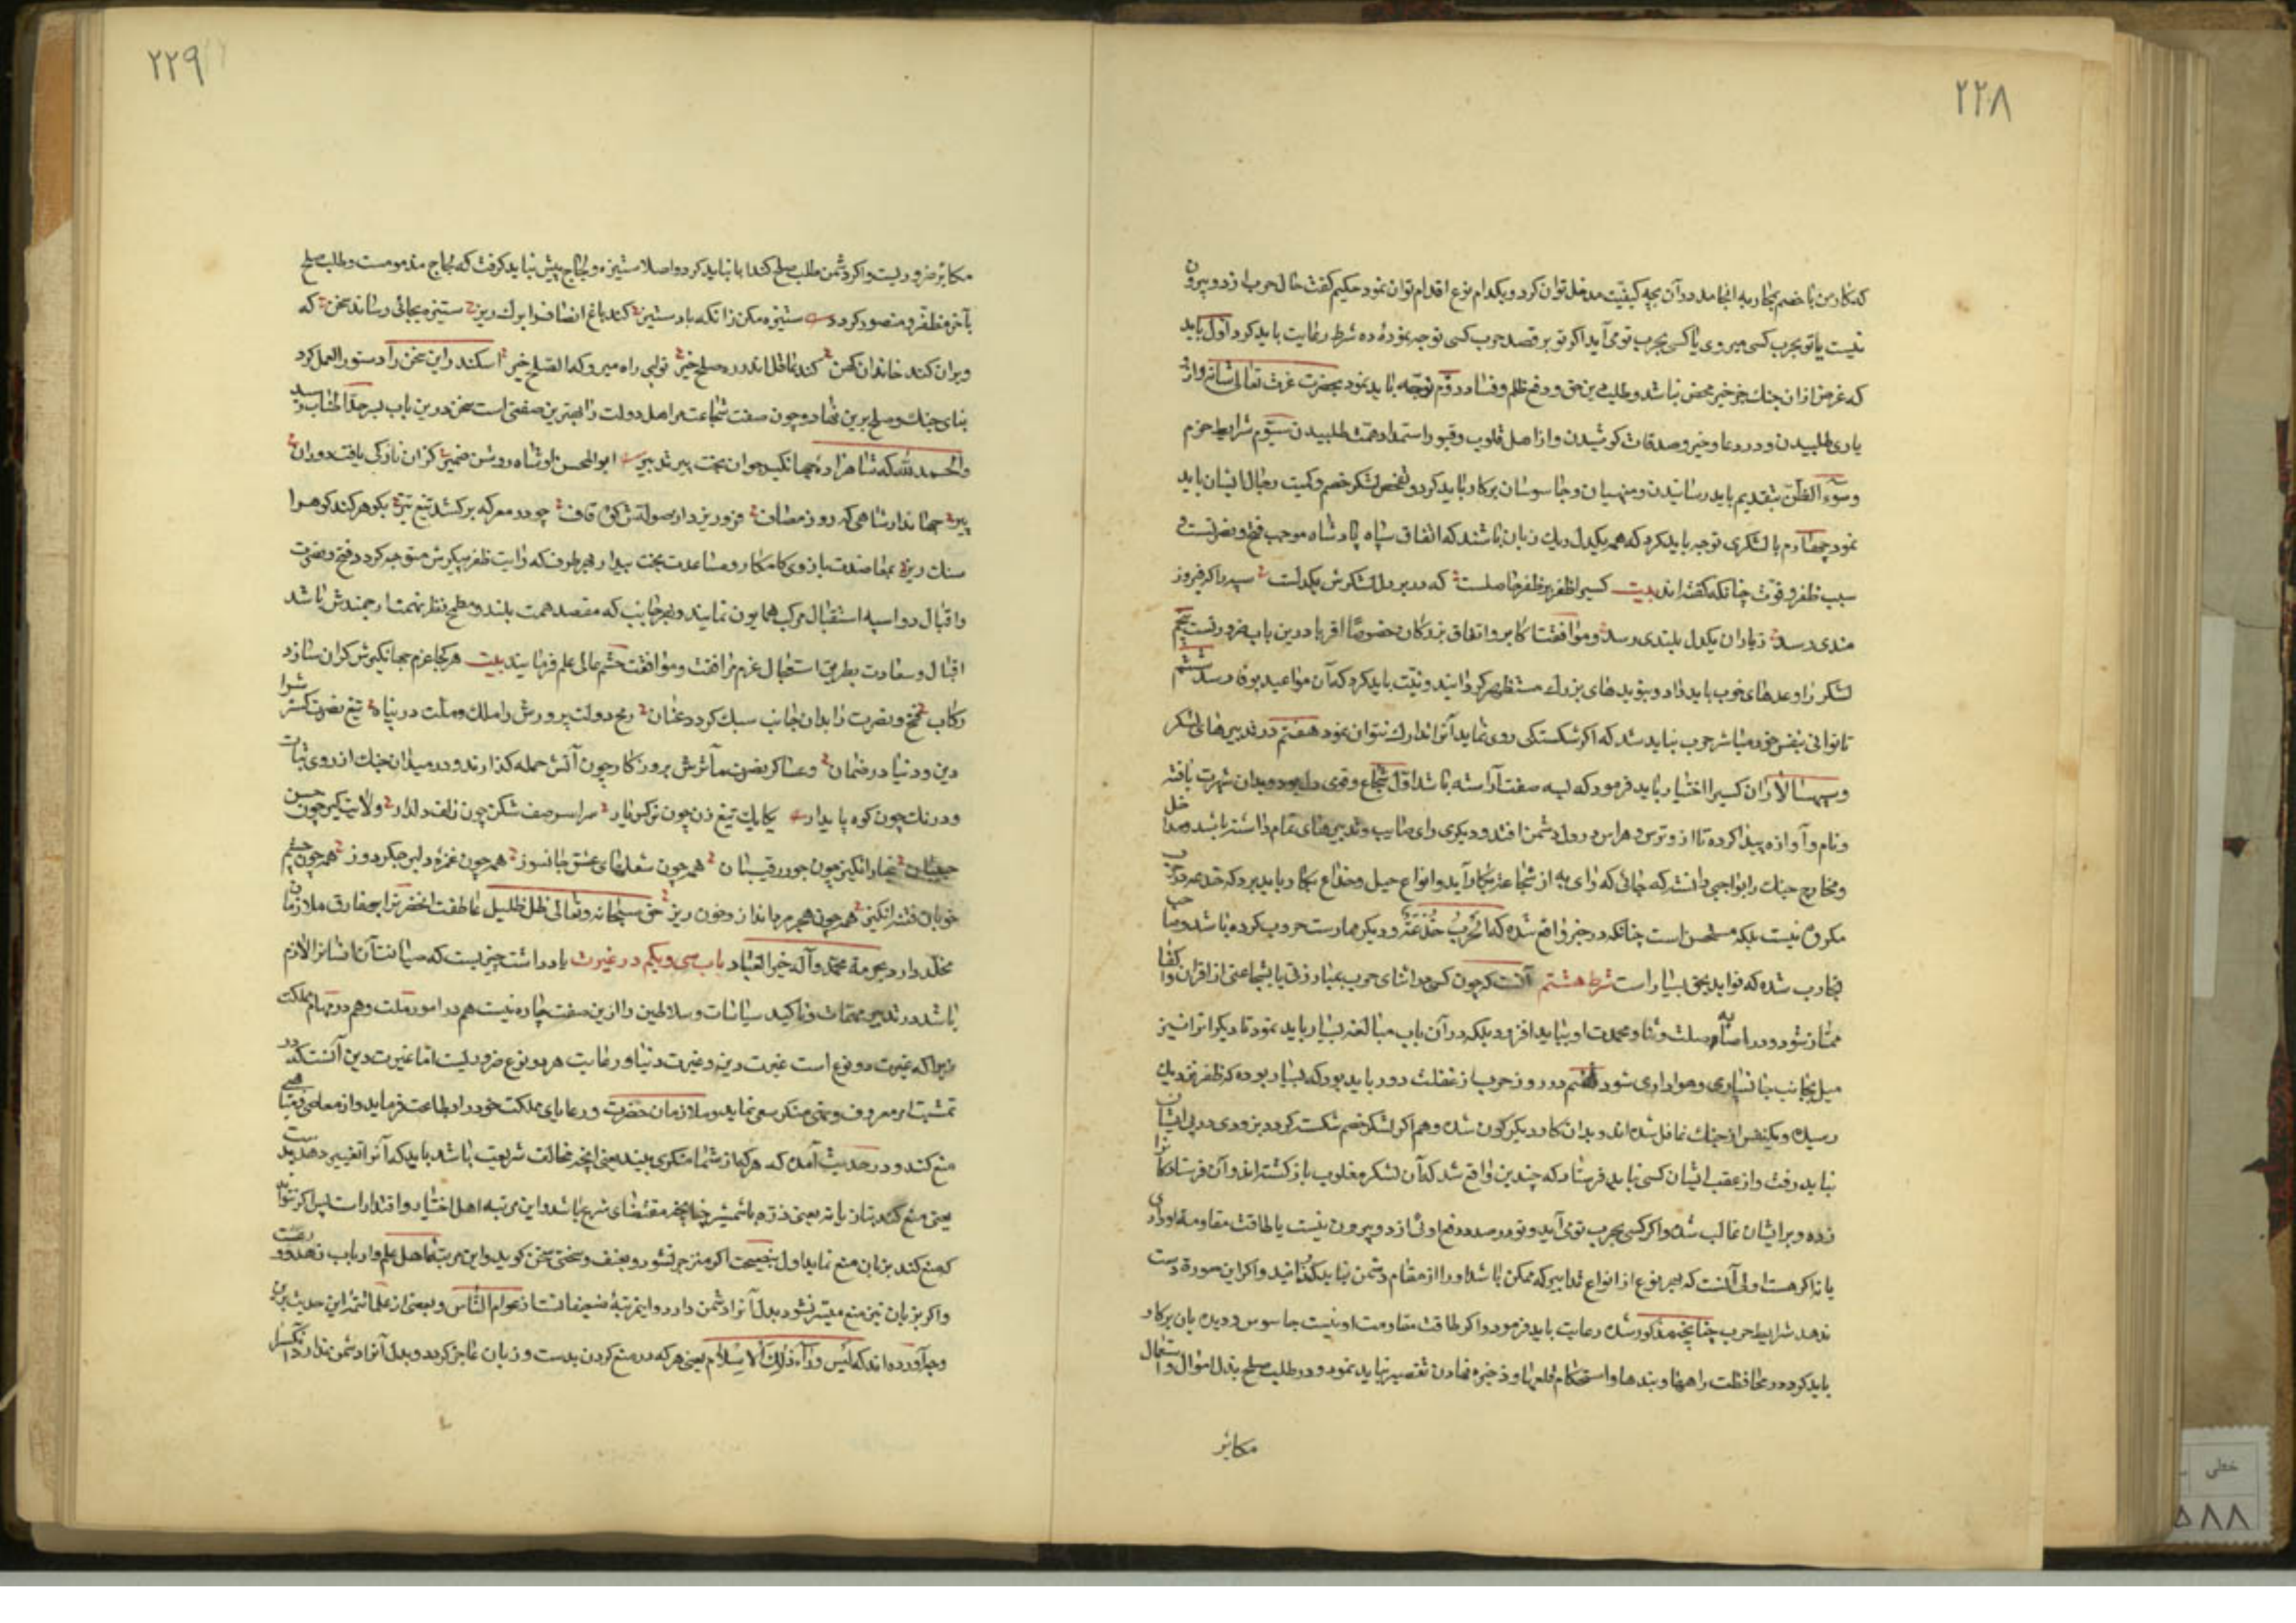 ۲۲۸
که کار من با خصم بمحاربه انجامد در آن بچه کیفیت مدخل توان کرد و بکدام نوع اقدام توان نمود حکیم گفت حال حرب از دو بیرون
نیست یا تو بحرب کسی میروی یا کسی بحرب تو می آید اگر تو بر قصد حرب کسی توجه نمودهٔ ده شرط رعایت باید کرد اول باید
که غرض از ان جنك جز خیر محض نباشد و طلب دین حق و دفع ظلم و فساد دوّم توجّه باید نمود بحضرت عزت تعالی شانه و از و
یاری طلبیدن و در دعا و خیر و صدقات کوشیدن و از اهل قلوب و قبور استمداد همّت طلبیدن سیّوم شرایط حزم
وسوُء الظنّ بتقدیم باید رسانیدن و منهیان و جاسوسان برکار باید کرد و تفحص لشکر خصم و کمیت رجال ایشان باید
نمود چهارم با لشکری توجه باید کرد که همه یکدل و یك زبان باشند که اتفاق سپاه پادشاه موجب فتح و نصرتست و
سبب ظفر و قوّت چنانکه گفته اند بیت کسیرا ظفر بر ظفر حاصلست که در بر دل لشکرش یکدلست سپه را که فیروز
مندی رسد ز یاران یکدل بلندی رسد و موافقت اکابر و اتفاق بزرکان خصوصًا اقربا درین باب ضرورتست پنجم
لشکر را وعدهای خوب باید داد و بنویدهای بزرك مستظهر کردانید و نیّت باید کرد که آن مواعید بوفا رسد ششم
تا توانی بنفس خود مباشر حرب نباید شد که اگر شکستگی روی نماید آنرا تدارك نتوان نمود هفتم در تدبیرهای لشکر
و سپهسالاران کسیرا اختیار باید فرمود که بسه صفت آراسته باشد اوّل شجاع و قوی دل بود و بدان شهرت یافته
و نام و آوازه پیدا کرده تا از و ترس و هراس در دل دشمن افتد و دیگری رای صایب و تدبیرهای تمام داشته باشد و مداخل
و مخارج جنك را بواجبی دانسته که جائی که رای به از شجاعت بکار آید و انواع حیل و خداع بکار باید برد که خدعه در حرب
مکروه نیست بلکه مستحسن است چنانکه در خبر واقع شده که الحَربُ خُدْعَةٌ و دیگر ممارست حروب کرده باشد و صاحب
تجارب شده که فواید بحق بسیار است شرط هشتم آنست که چون کسی در اثنای حرب بمبارزتی یا بشجاعتی از اقران و اکفا
ممتاز شود در اضافه صلت و ثنا و محمدت او بباید افزود بلکه در آن باب مبالغه بسیار باید نمود تا دیگرانرا نیز
میل بجانب جانسپاری و هواداری شود نهم در روز حرب از غفلت دور باید بود که بسیار بوده که ظفر نزدیك
رسیده و یکنفس از جنك غافل شده اند و بدان کار دیکرگون شده و هم اگر لشکر خصم شکسته گردد بزودی در پی ایشان
نباید رفت و از عقب ایشان کسی نباید فرستاد که چندین واقع شد که آن لشکر مغلوب باز کشته اند و آن فرستادگانرا
زده و بر ایشان غالب شده و اگر کسی بحرب تو می آید و تو در صدد دفع اوئی از دو بیرون نیست یا طاقت مقاومة او داری
یا نه اگر هست اولی آنست که بهر نوع از انواع تدابیر که ممکن باشد او را از مقام دشمن نباید گذرانید و اگر این صورة دست
ندهد شرایط حرب چنانچه مذکور شد رعایت باید فرمود و اگر طاقت مقاومت او نیست جاسوس و دیده بان برکار
باید کرد و در محافظت راهها و بندها و استحکام قلعها و ذخیره نهادن تقصیر نباید نمود و در طلب صلح بذل اموال و استعمال
مکاید
۲۲۹
مکاید ضروریست و اگر دشمن طلب صلح کند ابا نباید کرد و اصلا ستیزه و لجاج پیش نباید گرفت که لجاج مذمومست و طلب صلح
بآخر مظفر و منصور کردد ستیزه مکن زانکه باد ستیز کند باغ انصاف را برك ریز ستیزه بجائی رساند سخن که
ویران کند خاندان کهن کند عاقل اندر ره صلح خیز تو این راه میرو که الصلح خیر اسکندر این سخن را دستور العمل کرد
بنای جنك و صلح برین نهاد و چون صفت شجاعت مر اهل دولت را بهترین صفتی است سخن درین باب بسر حدّ اطناب رسید
و الحمد للّه که شاهزادهٔ جهانگیر جوان بخت پیر تدبیر ابو المحسن آن شاه روشن ضمیر کزان تازگی یافت دوران
پیر جهاندار شاهی که روز مصاف فرو ریزد از صولتش کوه قاف چو در معرکه برکشد تیغ تیز بگوهر کند کوه را
سنك ریز بمعاضدت بازوی کامکار و مساعدت بخت بیدار بهر طرف که رایت ظفر پیکرش متوجه کردد فتح و نصرت
و اقبال دو اسپه استقبال مرکب همایون نمایند و بهر جانب که مقصد همت بلند و مطمح نظر نهمت ارجمندش باشد
اقبال و سعادت بطریق استعجال عزم مرافقت و موافقت حشم عالی علم فرمایند بیت هر کجا عزم جهانگیرش کران سازد
رکاب فتح و نصرت را بدان جانب سبك گردد عنان رمح دولت پرورش را ملك و ملّت در پناه تیغ نصرت گسترش را
دین و دنیا در ضمان و عساکر نصرت مآثرش بروز کار چون آتش حمله گذارند و در میدان جنك از روی ثبات
و درنك چون کوه پایدار یکایك تیغ زن چون نرکس یار سراسر صف شکن چون زلف دلدار ولایت گیر چون حسن
حبیبان غبار انگیز چون جور رقیبان همه چون شعلهای عشق جانسوز همه چون غمزه دلبر جگر دوز همه چون چشم
خوبان فتنه انگیز همه چون هجر مرد انداز و خون ریز حق سبحانه و تعالی ظل ظلیل عاطفت انحضرترا بر مفارق ملازمان
مخلّد دارد بحرمة محمّد و آله خیر العباد باب سی و یکم در غیرت یاد داشت چیزیست که صیانت آن انسانرا لازم
باشد در تدبیر مهمّات و تاکید سیاسات و سلاطین را ازین صفت چاره نیست هم در امور ملت و هم در مهام مملکت
زیرا که غیرت دو نوع است غیرت دین و غیرت دنیا و رعایت هر دو نوع ضروریست امّا غیرت دین آنست که در
تمشیت امر معروف و نهی منکر سعی نماید و ملازمان حضرت و رعایای مملکت خود را بطاعت فرماید و از معاصی و مناهی
منع کند و در حدیث آمده که هر که از شما منکری بیند یعنی انچه مخالف شریعت باشد باید که آنرا تغییر دهد بدست
یعنی منع کند بتازیانه یعنی ذرّه یا شمشیر چنانچه مقتضای شرع باشد و این مرتبه اهل اختیار و اقتدار است پس اگر نتواند
که منع کند بزبان منع نماید اول بنصیحت اگر منزجر نشود بعنف و سختی سخن گوید و این مرتبهٔ اهل علم و ارباب زهد و ورعست
و اگر بزبان نیز منع میسّر نشود بدل آنرا دشمن دارد و این مرتبهٔ ضعیفانست از عوام النّاس و بعضی از علما تتمّه این حدیث برین
وجه آورده اند که لَیس وَرَآء ذلِكَ الاِسْلام یعنی هر که در منع کردن بدست و زبان عاجز گردد و بدل آنرا دشمن ندارد آنکس را
خطی
۵۸۸